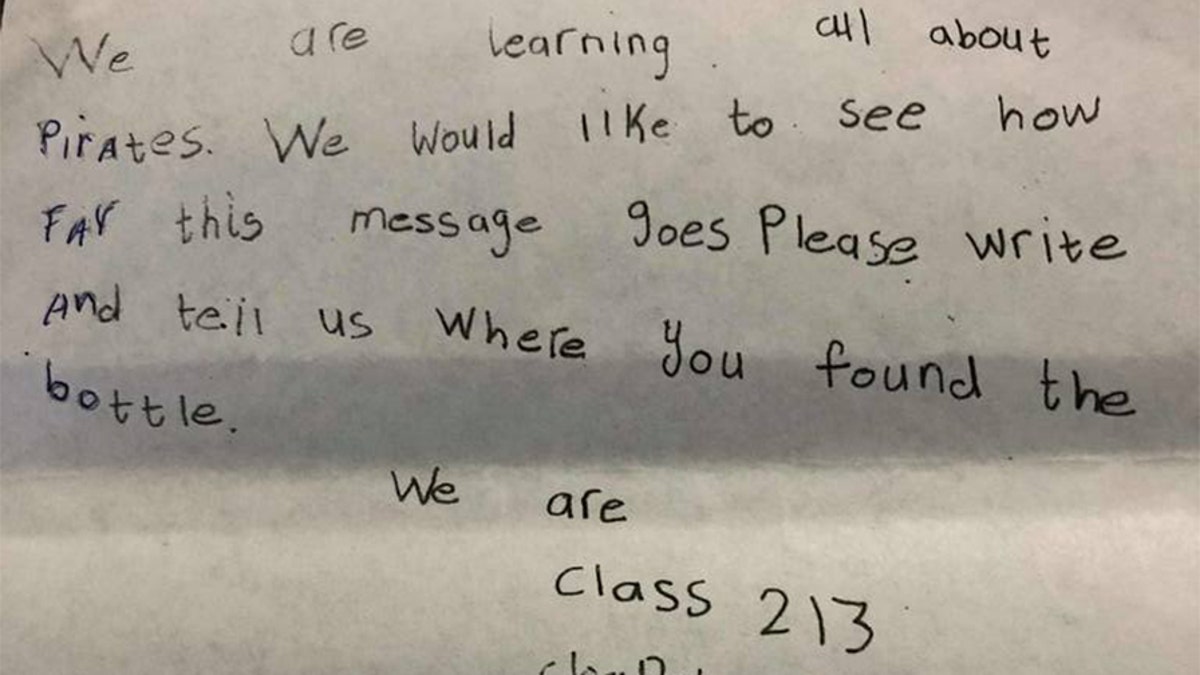 We are learning all about
PirAtes. We Would like to see how
FAr this message goes Please write
And tell us Where you found the
bottle.
We are
Class 213